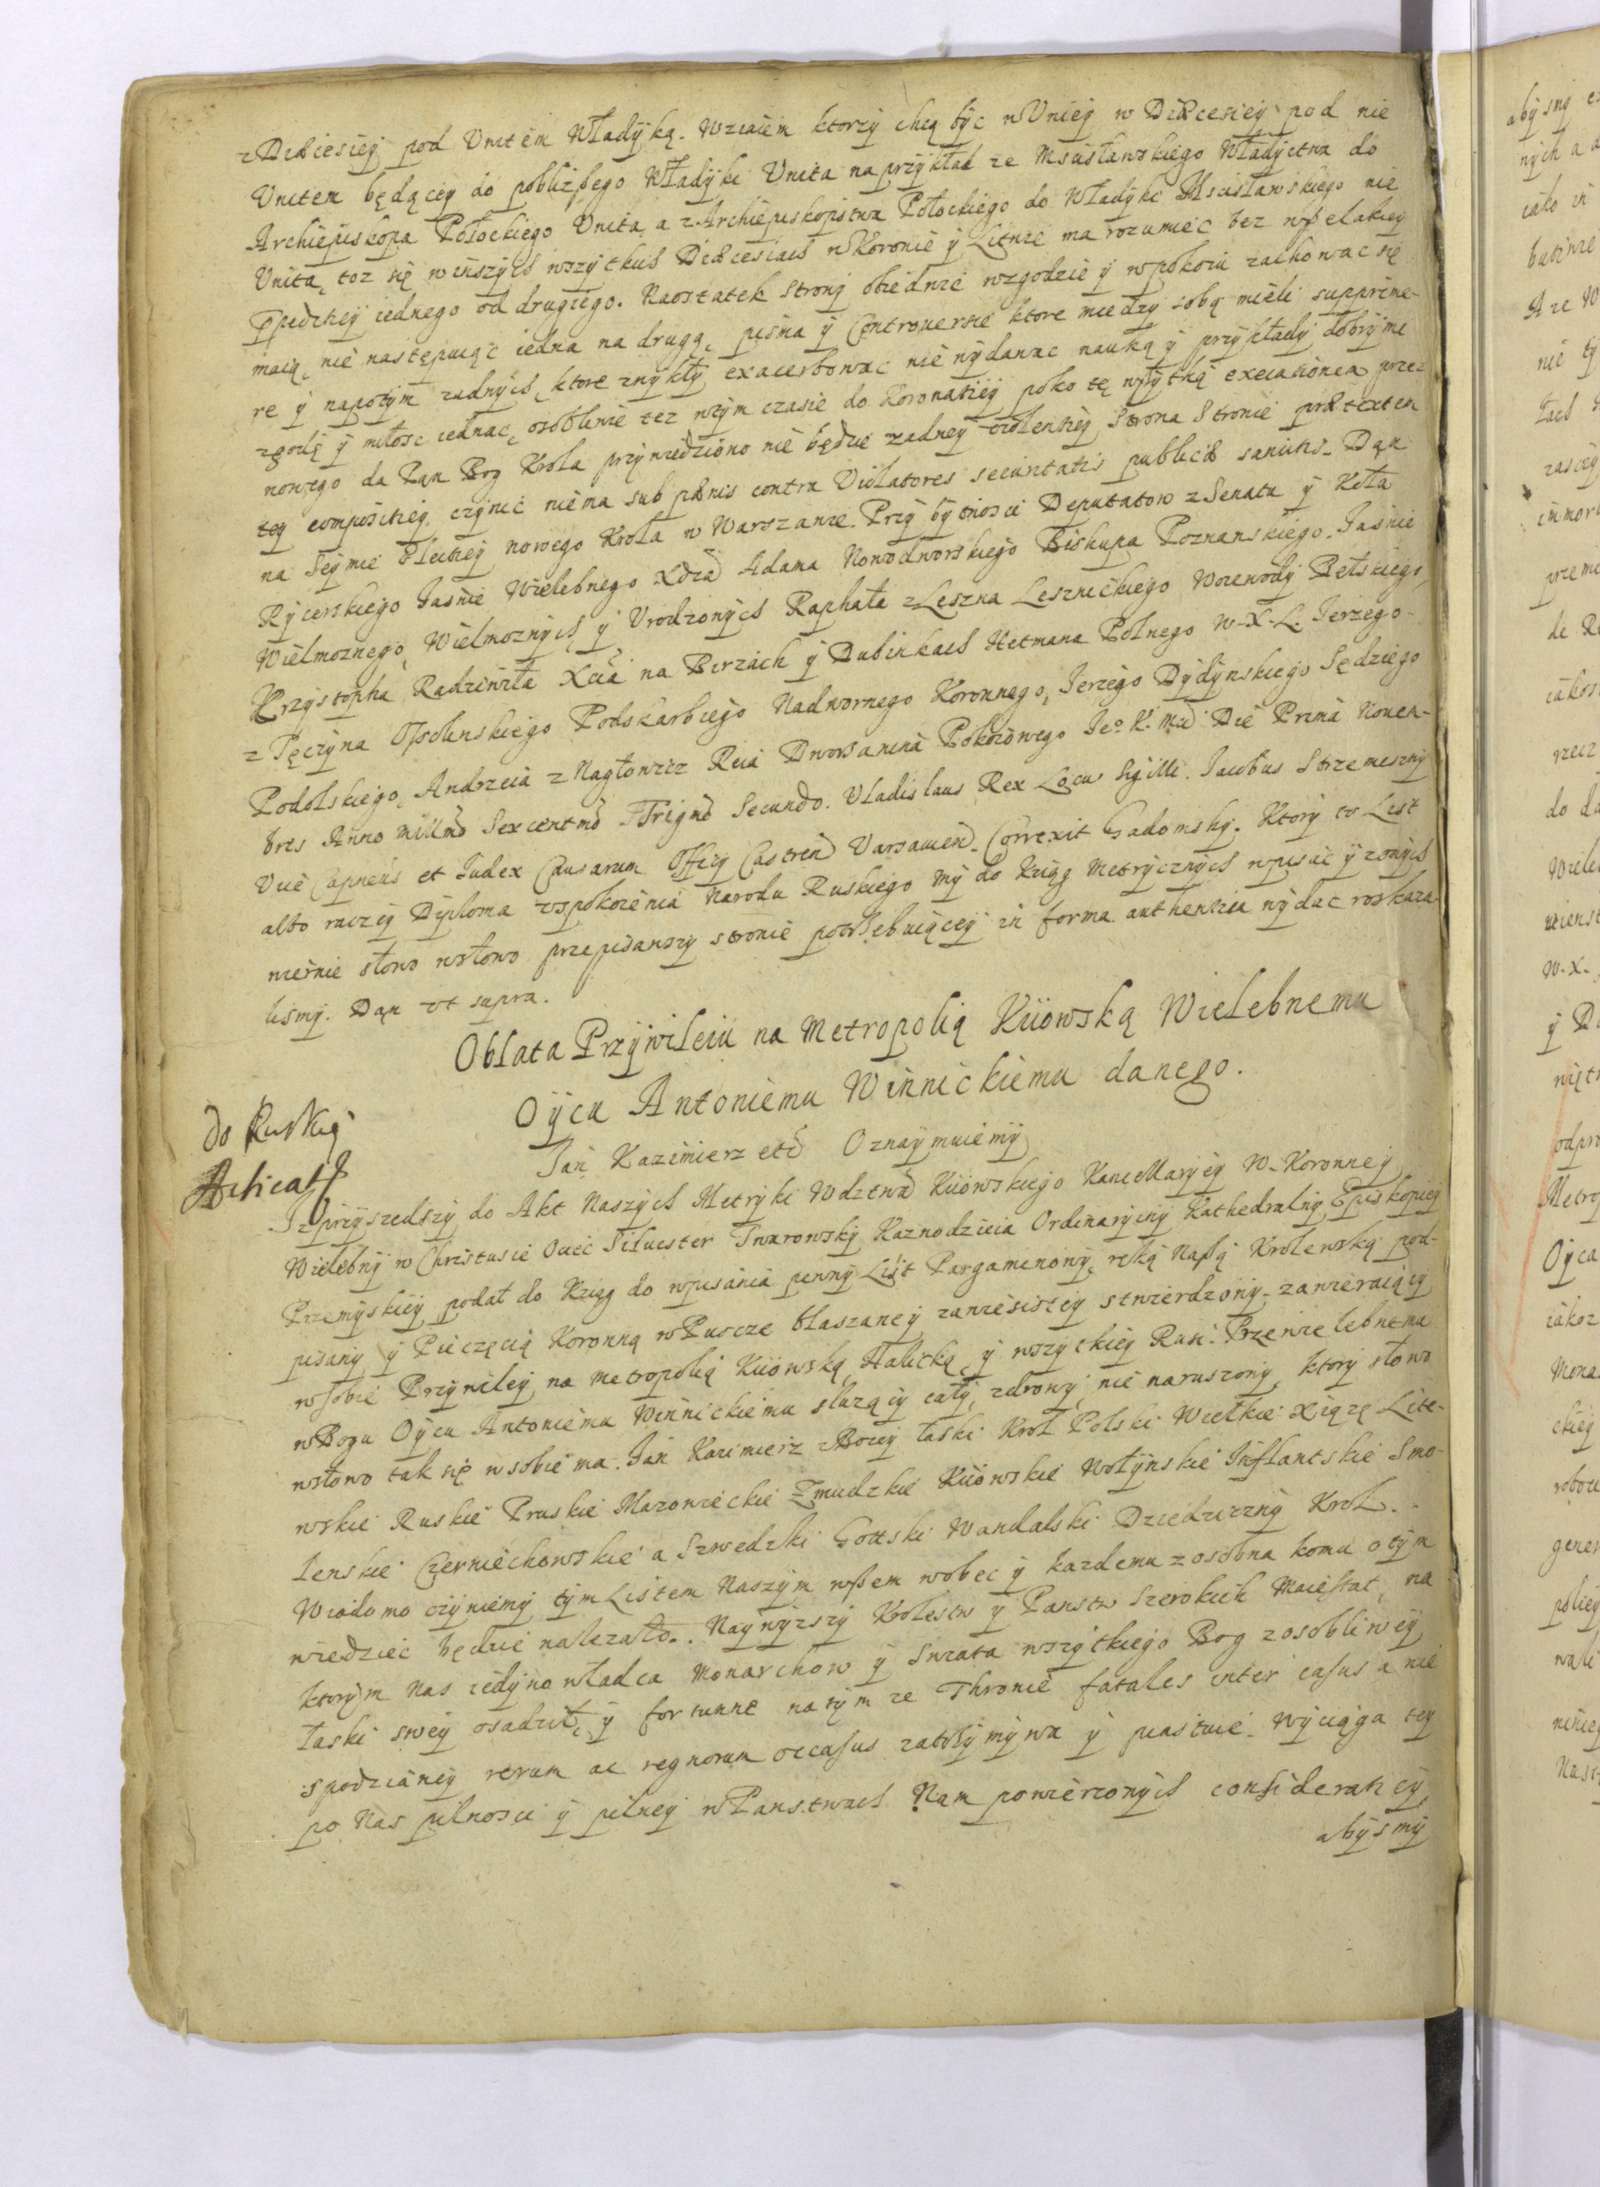 z Diæciesiey pod Unitem Władyką. Wzaiem ktorzy chcą być w Uniey w Diæcesiey pod nie
Unitem będącey do pobliższego Władyki Unita naprzykład ze Mscisławskiego Władyctwa do
Archiepiskopa Połockiego Unita, a z Archiepiskopstwa Połockiego do Władyki Mscisławskiego nie
Unita, toz się w inszych wszytkich Diæcesiach w Koronie y Litwie ma rozumieć bez wszelakiey
ppedrkiey iednego od drugiego. Naostatek strony obiedwie w zgodzie y w pokoiu zachować się
maią, nie następuiąc iedna na drugą, pisma y Controversie ktore miedzy sobą mieli supprime-
re y napotym zadnych, ktore zwykły exacerbować nie wydawać nauką y przykłady dobrymi
zgodę y miłość iednać, osobliwie tez w tym czasie do Koronatiey poko tę wszytką execatiónem przez
nowego da Pan Bog Krola przywiedziono nie będzie zadney violentiey Strona Stronie prætextem
tey compositiey czynić niema sub pænis contra Violatores securitatis publicæ sancitis. Dan
na Seymie Electiey nowego Krola w Warszawie. Przy bytnosci Deputatow z Senatu y Koła
Rycerskiego Jasnie Wielebnego Xdza Adama Nowodworskiego Biskupa Poznanskiego. Jasnie
Wielmoznego, Wielmoznych y Urodzonych Raphała z Leszna Lesznickiego Woiewody Bełskiego
Krzysztopha Radziwiła Xcia na Birzach y Dubinkach Hetmana Polnego W.X.L. Jerzego
z Tęczyna Ossolinskiego Podskarbiego Nadwornego Koronnego, Jerzego Dydynskiego Sędziego
Podolskiego, Andrzeia z Nagłowicz Reia Dworzanina Pokoiowego Jeo K. Mci Die Prima Novem-
bris Anno Millmo Sexcentmo Trigmo Secundo. Vladislaus Rex Locus Sigilli. Jacobus Strzemeszny
Vice Capneus et Judex Causarum Officij Castren Varsavien. Correxit Gadomsky. Ktory to List
albo raczey Dyploma uspokoienia Narodu Ruskiego my do Xiąg Metrycznych wpisać y z onych
wiernie słowo w słowo przepisawszy stronie potrzebuiącey in forma authentica wydać roskaza
lismy. Dan ut supra.
Oblata Przywileiu na Metropolią Kiiowską Wielebnemu
Oycu Antoniemu Winnickiemu danego.
do Ruskiey
Jan Kazimierz etc Oznaymuiemy
Iz przyszedszy do Akt Naszych Metryki Wdztwa Kiiowskiego Kancellaryey W. Koronney
Wielebny w Christusie Ociec Silvester Twarowsky Kaznodzieia Ordinaryiny Kathedralny Episkopiey
Przemyskiey podał do Xiąg do wpisania pewny List Pargaminowy, ręką Naszą Krolewską pod-
pisany y Pieczęcią Koronną w Puscze blaszaney zawiesistey stwierdzony, zawieraiący
w sobie Przywiley na Metropolią Kiiowską, Halicką y wszytkiey Rusi. Przewielebnemu
w Bogu Oycu Antoniemu Winnickiemu słuzący cały, zdrowy nie naruszony, ktory słowo
w słowo tak się w sobie ma. Jan Kazimierz z Bozey łaski Krol Polski Wielkie Xiązę Lite-
wskie Ruskie Pruskie Mazowieckie Zmudzkie Kiiowskie Wołynskie Inflantskie Smo-
lenskie Czerniechowskie a Szwedzki Gottski Wandalski Dziedziczny Krol.
Wiadomo czyniemy tym Listem Naszym wszem wobec y kazdemu z osobna komu o tym
wiedzieć będzie nalezało. Naywyzszy Krolestw y Panstw Szerokich Maiestat, na
ktorym Nas iedynowładca Monarchow y Swiata wszytkiego Bog z osobliwey
łaski swey osadził, y fortunne na tym ze Thronie fatales inter casus a nie
spodzianey rerum ac regnorum occasus zatrzymywa y piastuie. Wyciąga tey
po Nas pilnosci y pilney w Panstwach Nam powierzonych consideratiey,
abysmy